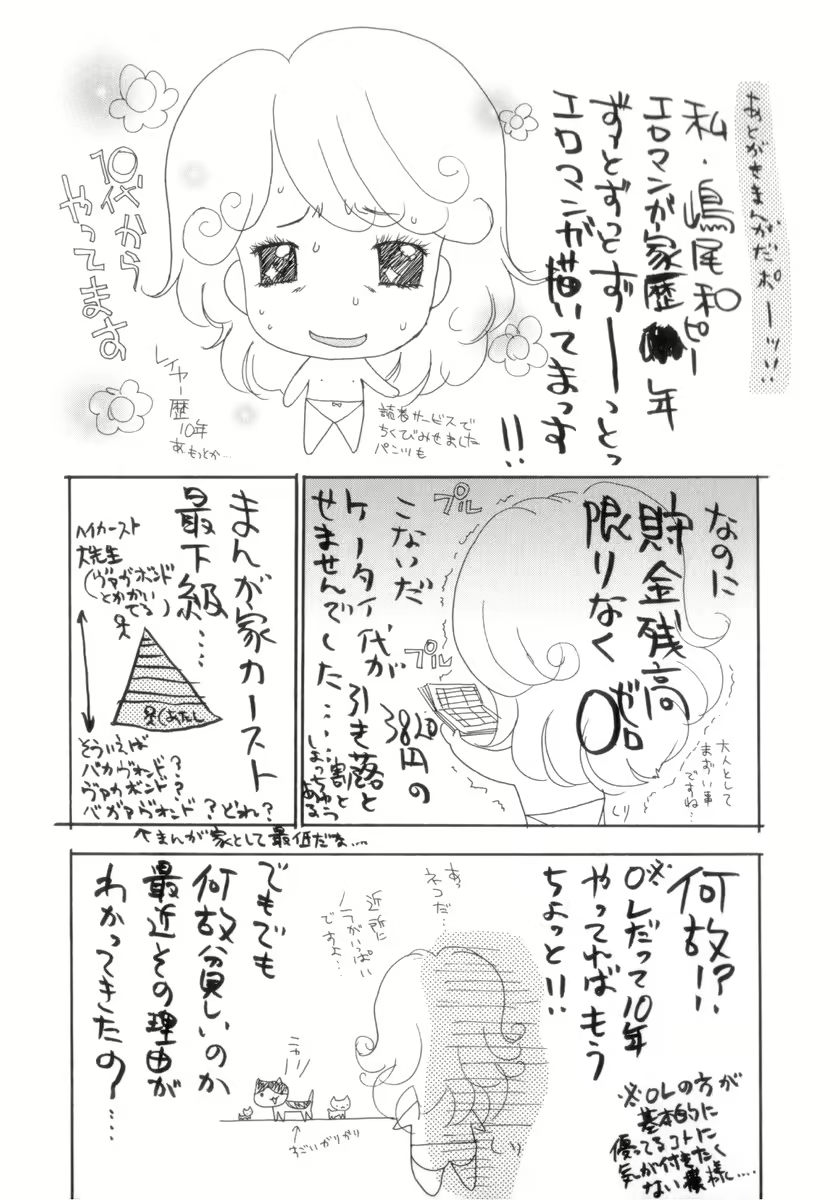 あとがきまんがだポーッ!!
私・嶋尾和ピー
エロマンガ家歴 年
ずっとずっとず――っとっ
エロマンガ描いてまっす
!!
10代から
やってます
レイヤー歴
10年
あ、もっとか…
読者サービスで
ちくびみせました
パンツも
なのに
貯金残高
限りなく
0
ゼロ
プル
プル
こないだ
3820円の
ケータイ代が引き落と
せませんでした……
しょっちゅう
割と
ある
大人として
まずい事
ですね…
まんが家カースト
最下級……
ハイカースト
大先生
(ヴァガボンド
とかかい
てる)
あたし
そういえば
バカヴォンド?
ヴァガボンド?
バガァヴォンド?どれ?
↑まんが家として最低だな……
何故!?
※OLだって10年
やってればもう
ちょっと!!
※OLの方が
基本的に
優ってるコトに
気が付きたく
ない模様……
あっ
ネコだ…
近所に
ノラがいっぱい
ですよ…
ニャー
すごいがりがり
でもでも
何故貧しいのか
最近その理由が
わかってきたの……